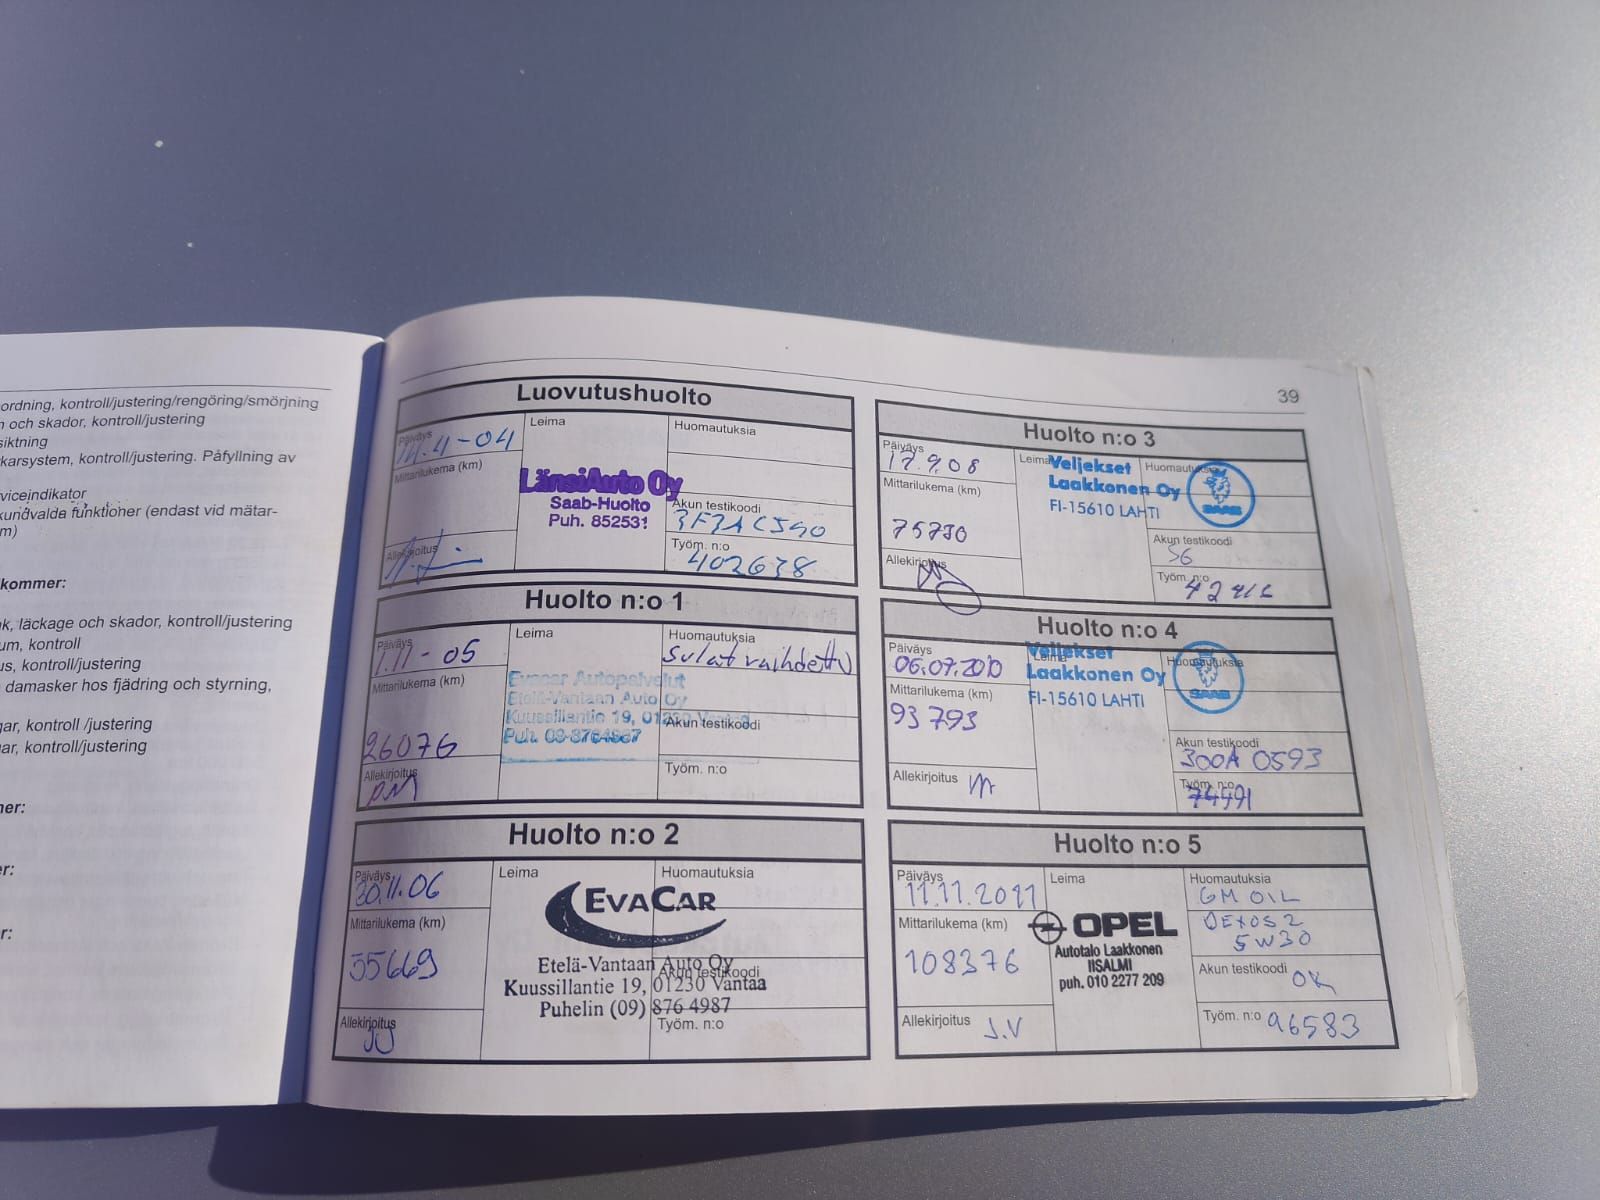 ordning, kontroll/justering/rengöring/smörjning
och skador, kontroll/justering
siktning
karsystem, kontroll/justering. Påfyllning av
viceindikator
kundvalda funktioner (endast vid mätar-
m)
kommer:
k, läckage och skador, kontroll/justering
um, kontroll
us, kontroll/justering
damasker hos fjädring och styrning,
gar, kontroll /justering
ar, kontroll/justering
ner:
er:
r:
39
Luovutushuolto
Päiväys
14.4-04
Mittarilukema (km)
Allekirjoitus
Leima
LänsiAuto Oy
Saab-Huolto
Puh. 852531
Huomautuksia
Akun testikoodi
3F3ACJ90
Työm. n:o
402638
Huolto n:o 1
Päiväys
1.11-05
Mittarilukema (km)
26076
Allekirjoitus
PM
Leima
Evacar Autopalvelut
Etelä-Vantaan Auto Oy
Kuussillantie 19, 01230 Vantaa
Puh. 09-8764987
Huomautuksia
sulat vaihdettu
Akun testikoodi
Työm. n:o
Huolto n:o 2
Päiväys
30.11.06
Mittarilukema (km)
55669
Allekirjoitus
JJ
Leima
EVACAR
Etelä-Vantaan Auto Oy
Kuussillantie 19, 01230 Vantaa
Puhelin (09) 876 4987
Huomautuksia
Akun testikoodi
Työm. n:o
Huolto n:o 3
Päiväys
17.9.08
Mittarilukema (km)
75790
Allekirjoitus
Leima
Veljekset
Laakkonen Oy
FI-15610 LAHTI
SAAB
Huomautuksia
Akun testikoodi
S6
Työm. n:o
Huolto n:o 4
Päiväys
06.07.2010
Mittarilukema (km)
93793
Allekirjoitus
Leima
Veljekset
Laakkonen Oy
FI-15610 LAHTI
SAAB
Huomautuksia
Akun testikoodi
300A 0593
Työm. n:o
74491
Huolto n:o 5
Päiväys
11.11.2011
Mittarilukema (km)
108376
Allekirjoitus
J.V
Leima
OPEL
Autotalo Laakkonen
IISALMI
puh. 010 2277 209
Huomautuksia
GM OIL
DEXOS2
5W30
Akun testikoodi
OK
Työm. n:o
96583